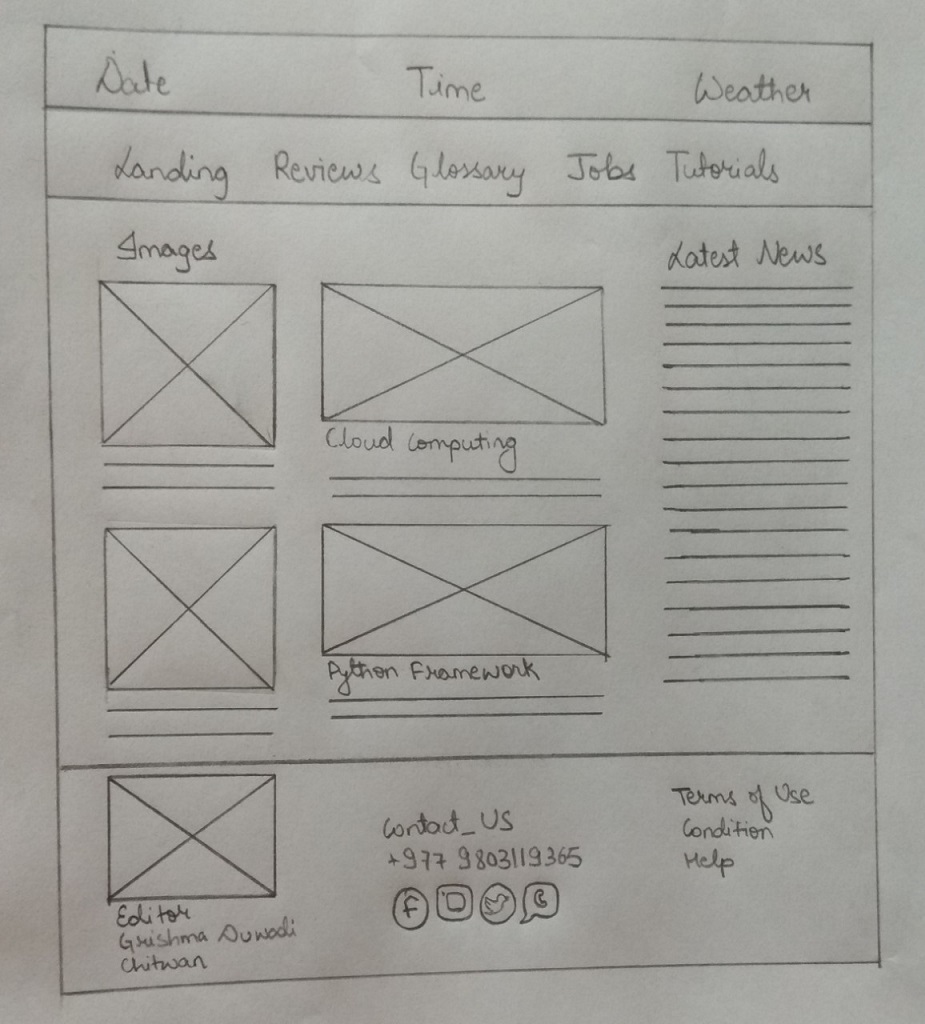 Date Time Weather
Landing Reviews Glossary Jobs Tutorials
Images
Latest News
Cloud Computing
Python Framework
Editor
Grishma Duwadi
Chitwan
Contact_US
+977 9803119365
Terms of Use
Condition
Help